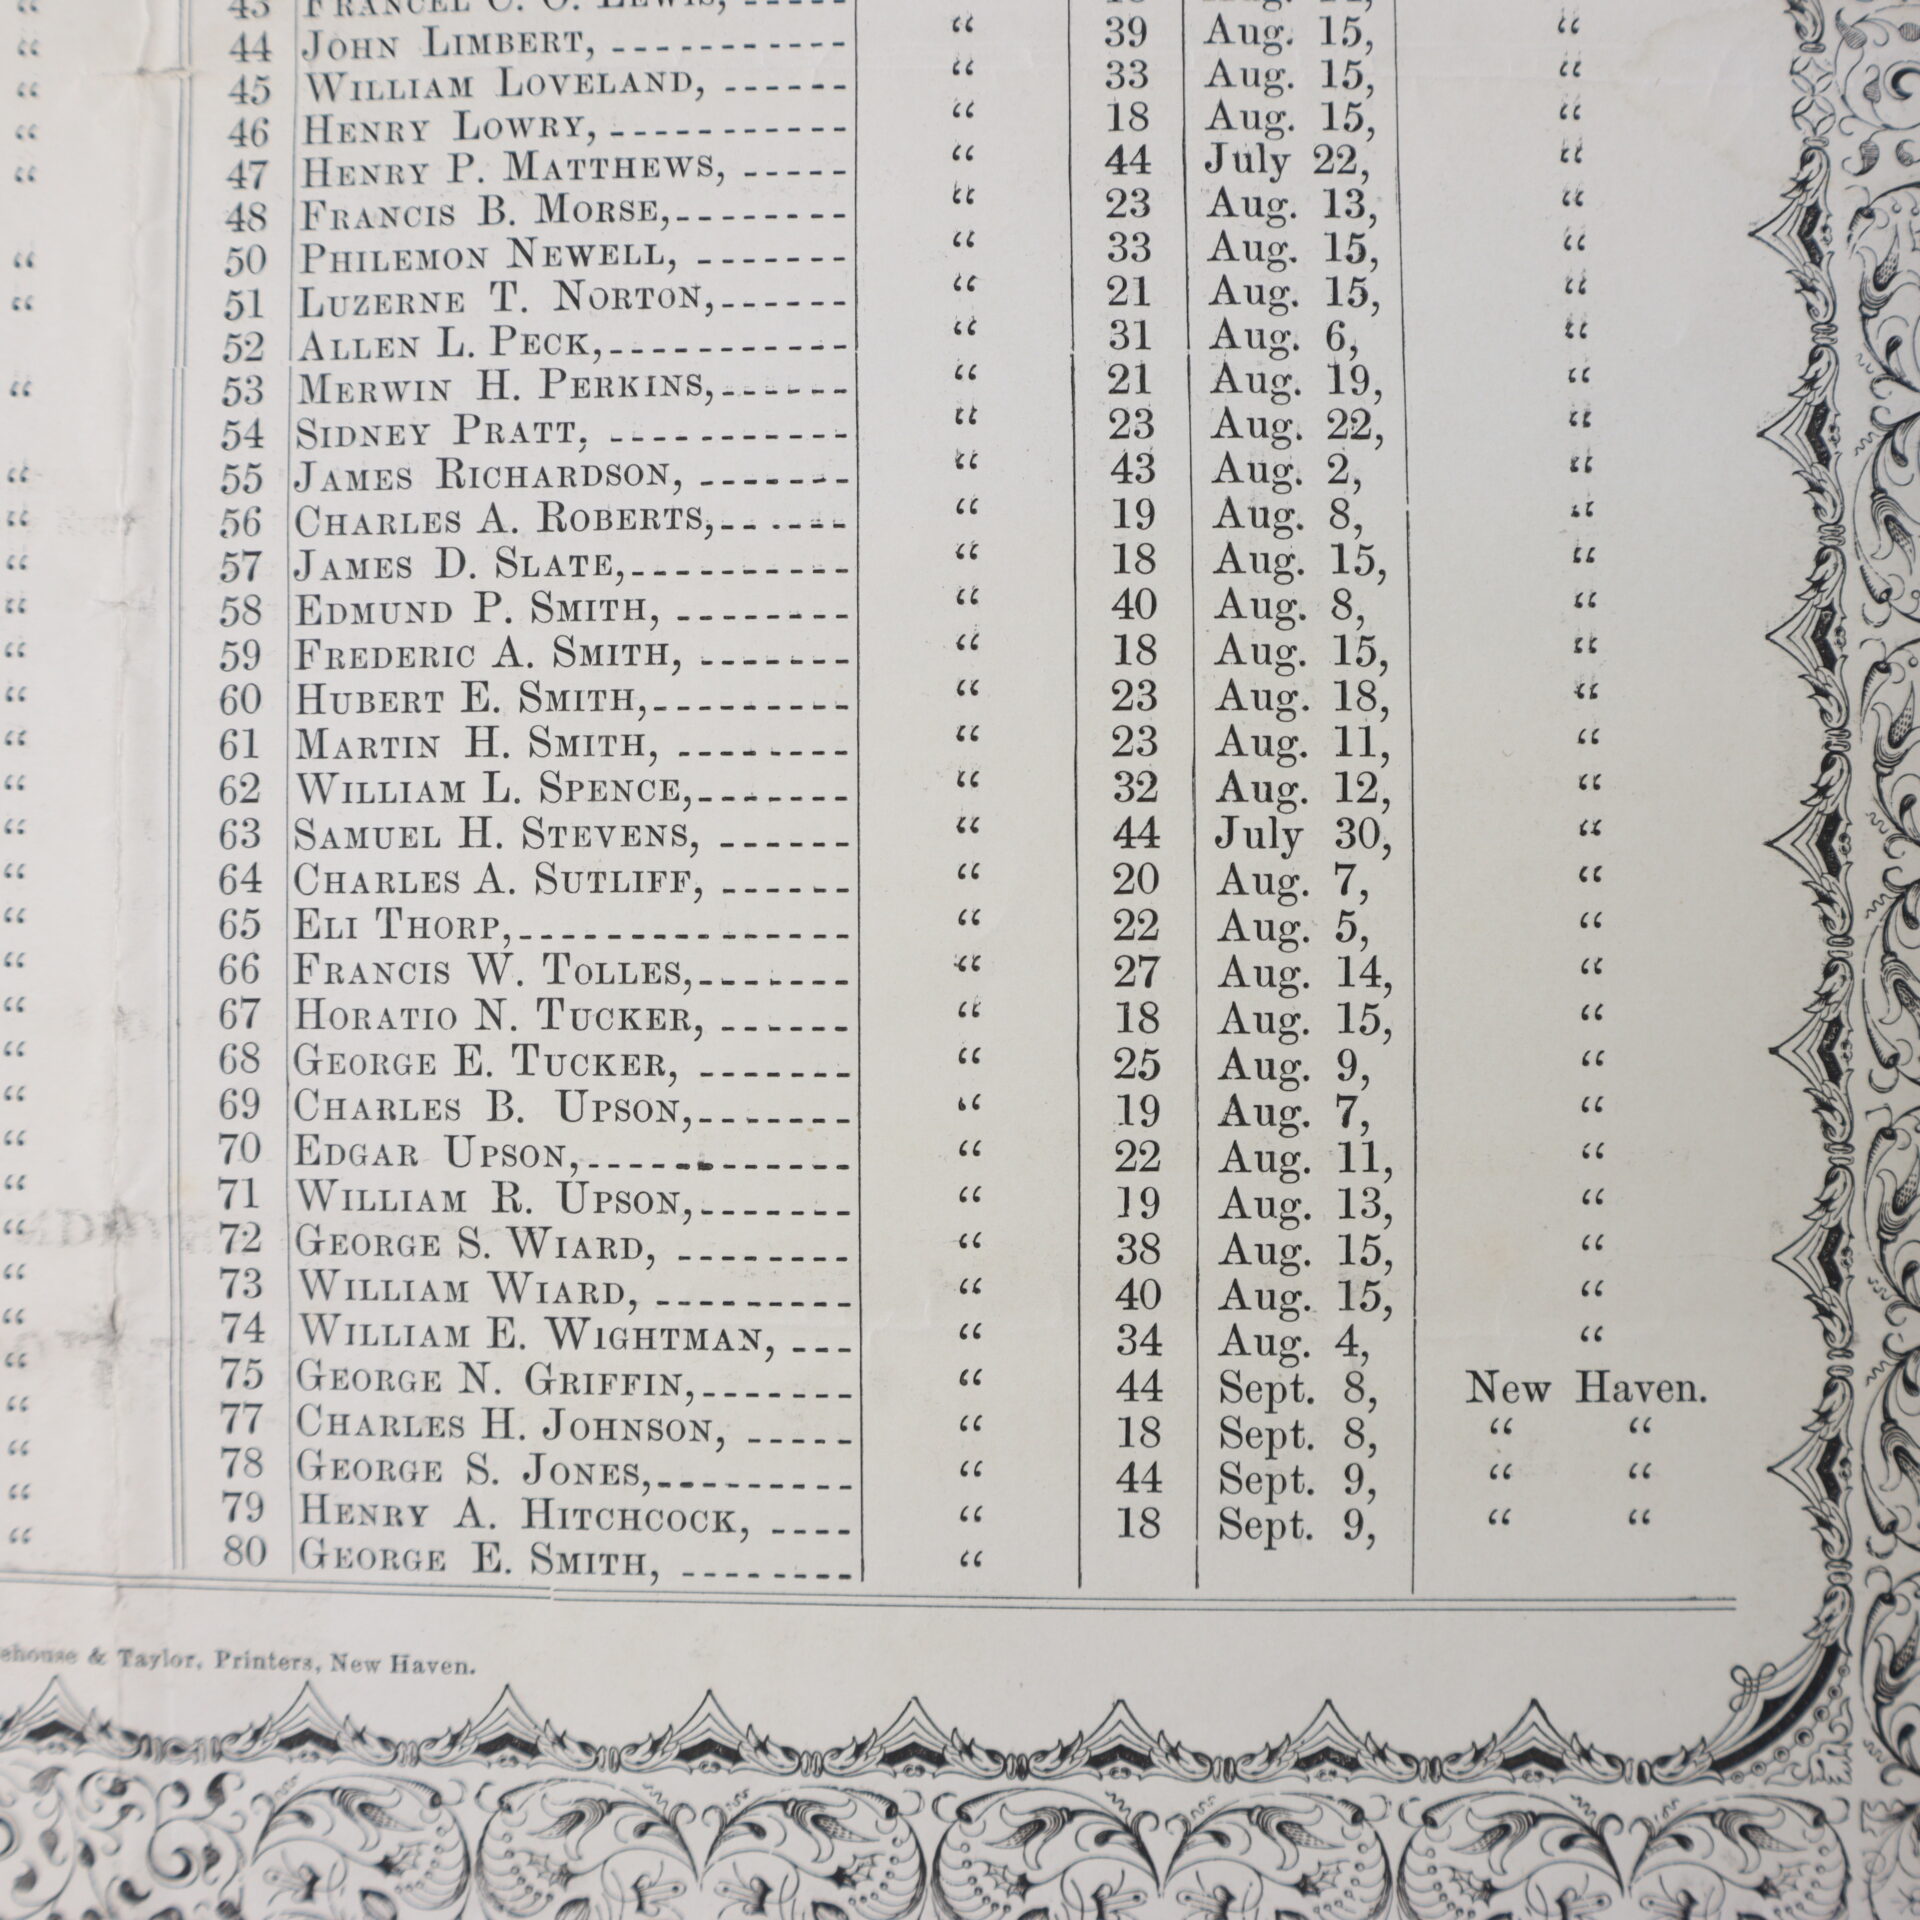 “ 43 FRANCEL C. O. LEWIS, “ 18 Aug. 14, “
“ 44 JOHN LIMBERT, “ 39 Aug. 15, “
“ 45 WILLIAM LOVELAND, “ 33 Aug. 15, “
“ 46 HENRY LOWRY, “ 18 Aug. 15, “
“ 47 HENRY P. MATTHEWS, “ 44 July 22, “
48 FRANCIS B. MORSE, “ 23 Aug. 13, “
“ 50 PHILEMON NEWELL, “ 33 Aug. 15, “
“ 51 LUZERNE T. NORTON, “ 21 Aug. 15, “
52 ALLEN L. PECK, “ 31 Aug. 6, “
“ 53 MERWIN H. PERKINS, “ 21 Aug. 19, “
54 SIDNEY PRATT, “ 23 Aug. 22, “
“ 55 JAMES RICHARDSON, “ 43 Aug. 2, “
“ 56 CHARLES A. ROBERTS, “ 19 Aug. 8, “
“ 57 JAMES D. SLATE, “ 18 Aug. 15, “
“ 58 EDMUND P. SMITH, “ 40 Aug. 8, “
“ 59 FREDERIC A. SMITH, “ 18 Aug. 15, “
“ 60 HUBERT E. SMITH, “ 23 Aug. 18, “
“ 61 MARTIN H. SMITH, “ 23 Aug. 11, “
“ 62 WILLIAM L. SPENCE, “ 32 Aug. 12, “
“ 63 SAMUEL H. STEVENS, “ 44 July 30, “
“ 64 CHARLES A. SUTLIFF, “ 20 Aug. 7, “
“ 65 ELI THORP, “ 22 Aug. 5, “
“ 66 FRANCIS W. TOLLES, “ 27 Aug. 14, “
“ 67 HORATIO N. TUCKER, “ 18 Aug. 15, “
“ 68 GEORGE E. TUCKER, “ 25 Aug. 9, “
“ 69 CHARLES B. UPSON, “ 19 Aug. 7, “
“ 70 EDGAR UPSON, “ 22 Aug. 11, “
“ 71 WILLIAM R. UPSON, “ 19 Aug. 13, “
“ 72 GEORGE S. WIARD, “ 38 Aug. 15, “
“ 73 WILLIAM WIARD, “ 40 Aug. 15, “
“ 74 WILLIAM E. WIGHTMAN, “ 34 Aug. 4, “
“ 75 GEORGE N. GRIFFIN, “ 44 Sept. 8, New Haven.
“ 77 CHARLES H. JOHNSON, “ 18 Sept. 8, “ “
“ 78 GEORGE S. JONES, “ 44 Sept. 9, “ “
“ 79 HENRY A. HITCHCOCK, “ 18 Sept. 9, “ “
“ 80 GEORGE E. SMITH, “
ehouse & Taylor, Printers, New Haven.